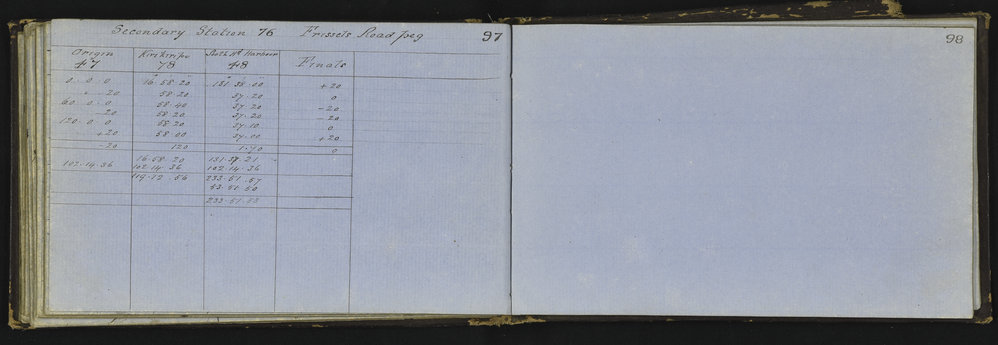 Secondary Station 76 Frissels Road peg 97
98
Origin Kirikiripu South Hd Harbour Finals
47 78 48
0 . 0 . 0 16 . 58 . 20 131 . 38 . 00 +20
" . -20 58 . 20 37 . 20 0
60 . 0 . 0 58 . 40 37 . 20 -20
-20 58 . 20 37 . 20 -20
120 . 0 . 0 58 . 20 37 . 10 0
+20 58 . 00 37 . 00 +20
-20 120 0
16 . 58 . 20 131 . 37 . 21
102 . 14 . 36 102 . 14 . 36 102 . 14 . 36
119 . 12 . 56 233 . 51 . 57
53 . 51 . 50
233 . 51 . 53